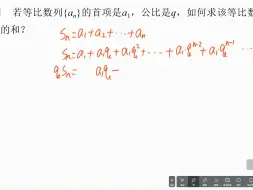 若等比数列{aₙ}的首项是a₁，公比是q，如何求该等比数
的和？
Sₙ=a₁+a₂+⋯+aₙ
Sₙ=a₁+a₁q+a₁q²+⋯+a₁qⁿ⁻²+a₁qⁿ⁻¹
qSₙ= a₁q−